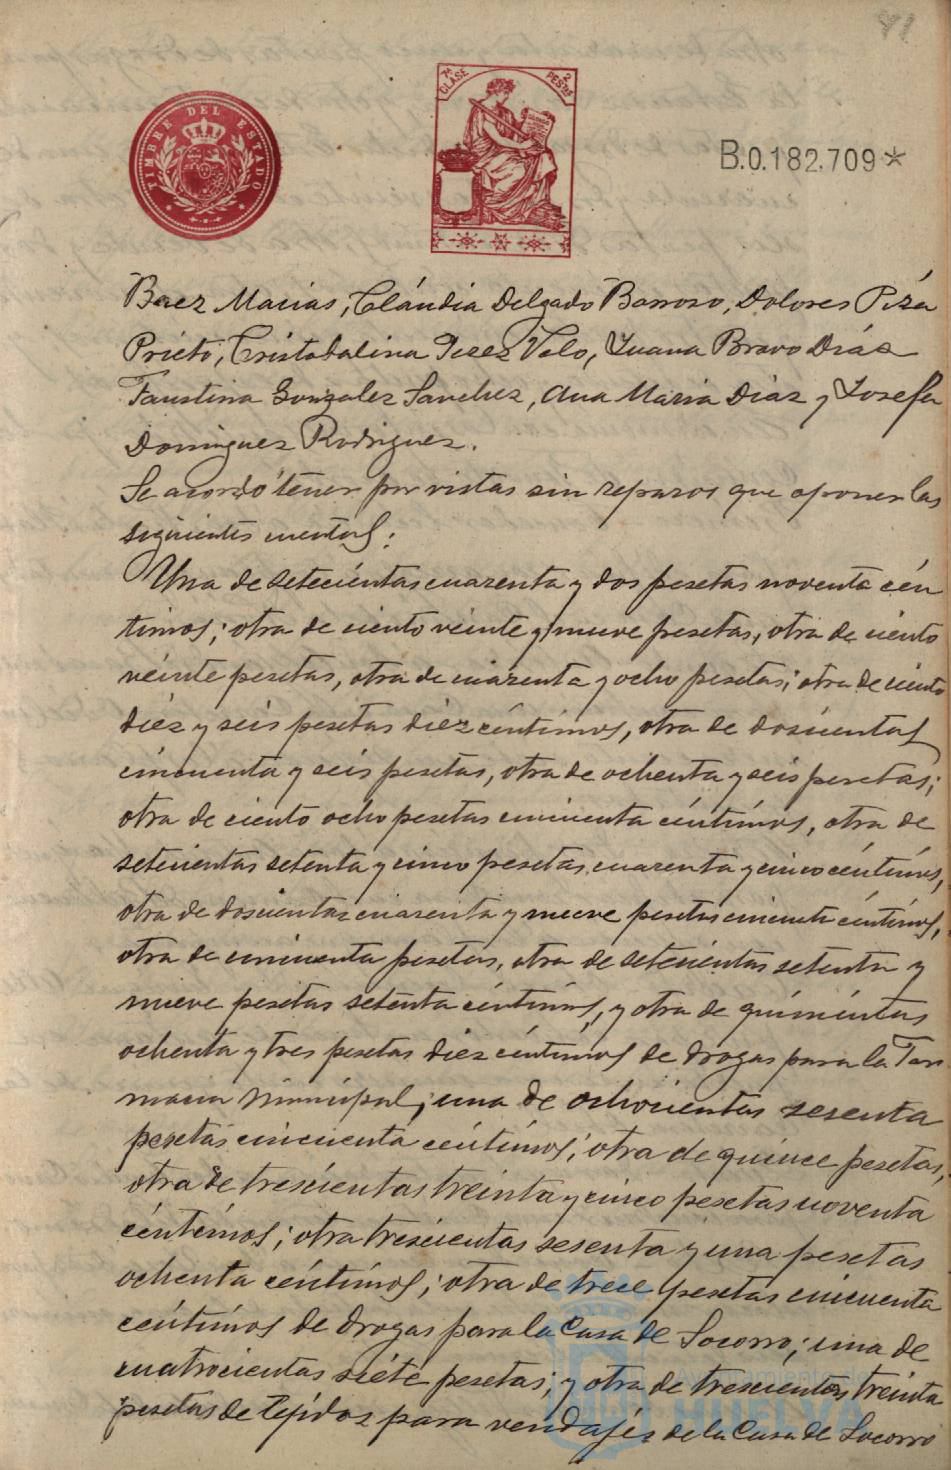 91
TIMBRE DEL ESTADO
7ª CLASE
2 PESTAS
B.0.182.709*
Baez Macias, Cláudia Delgado Barroso, Dolores Piza
Prieto, Cristobalina Perez Velo, Juana Bravo Diáz
Faustina Gonzalez Sanchez, Ana Maria Diaz y Josefa
Dominguez Rodriguez.
Se acordó tener por vistas sin reparos que oponer las
siguientes cuentas:
Una de setecientas cuarenta y dos pesetas noventa cén
timos; otra de ciento veinte y nueve pesetas, otra de ciento
veinte pesetas, otra de cuarenta y ocho pesetas; otra de ciento
diez y seis pesetas diez céntimos, otra de doscientas
cincuenta y seis pesetas, otra de ochenta y seis pesetas;
otra de ciento ocho pesetas cincuenta céntimos, otra de
setecientas setenta y cinco pesetas cuarenta y cinco céntimos,
otra de doscientas cuarenta y nueve pesetas cincuenta céntimos,
otra de cincuenta pesetas, otra de setecientas setenta y
nueve pesetas setenta céntimos, y otra de quinientas
ochenta y tres pesetas diez céntimos de drogas para la Far
macia Municipal; una de ochocientas sesenta
pesetas cincuenta céntimos; otra de quince pesetas,
otra de trescientas treinta y cinco pesetas noventa
céntimos; otra trescientas sesenta y una pesetas
ochenta céntimos; otra de trece pesetas cincuenta
céntimos de drogas para la Casa de Socorro; una de
cuatrocientas siete pesetas; y otra de trescientas treinta
pesetas de tejidos para vendajes de la Casa de Socorro
HUELVA